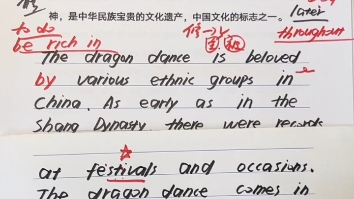 神，是中华民族宝贵的文化遗产，中国文化的标志之一。 later
to do
be rich in
throughout
The dragon dance is beloved
by various ethnic groups in
China. As early as in the
Shang Dynasty there were records
at festivals and occasions.
The dragon dance comes in